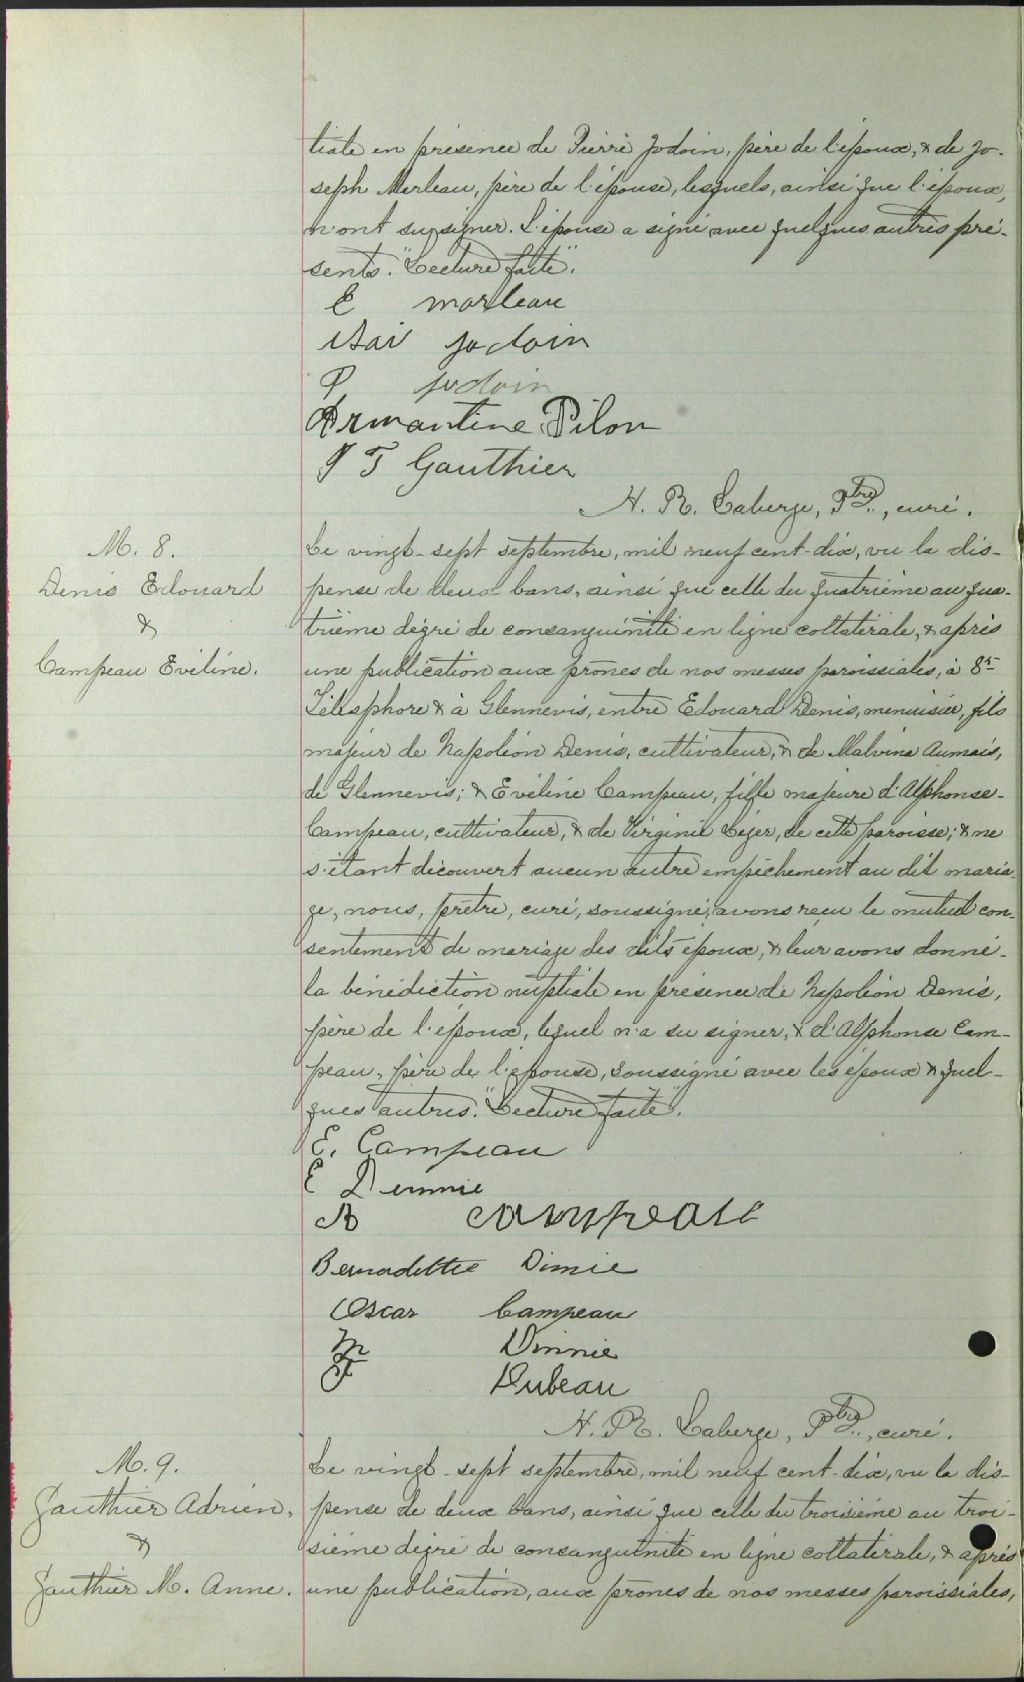 tiale en présence de Pierre Jodoin, père de l'époux, & de Jo-
seph Merleau, père de l'épouse, lesquels, ainsi que l'époux,
n'ont su signer. L'épouse a signé avec quelques autres pré-
sents. "Lecture faite".
E marleau
isai jodoin
P jodoin
Armantine Pilon
J T Gauthier
H. R. Laberge, Ptre., curé.
M. 8.
Denis Edouard
&
Campeau Eveline.
Le vingt-sept septembre, mil neuf cent-dix, vu la dis-
pense de deux bans, ainsi que celle du quatrième au qua-
trième dégré de consanguinité en ligne collatérale, & après
une publication aux prônes de nos messes paroissiales, à St
Télesphore & à Glennevis, entre Edouard Denis, menuisier, fils
majeur de Napoléon Denis, cultivateur, & de Malvina Aumais,
de Glennevis; & Eveline Campeau, fille majeure d'Alphonse-
Campeau, cultivateur, & de Virginie Léger, de cette paroisse; & ne
s'étant découvert aucun autre empêchement au dit maria-
ge, nous, prêtre, curé, soussigné, avons reçu le mutuel con-
sentement de mariage des dits époux, & leur avons donné-
la bénédiction nuptiale en présence de Napoléon Denis,
père de l'époux, lequel n'a su signer, & d'Alphonse Cam-
peau, père de l'épouse, soussigné avec les époux & quel-
ques autres. "Lecture faite".
E. Campeau
E Dennie
A campeau
Bernadette Dinnie
Oscar Campeau
M Dinnie
F Dubeau
H. R. Laberge, Ptre., curé.
M. 9.
Gauthier Adrien,
&
Gauthier M. Anne.
Le vingt-sept septembre, mil neuf cent-dix, vu la dis-
pense de deux bans, ainsi que celle du troisième au troi-
sième dégré de consanguinité en ligne collatérale, & après
une publication, aux prônes de nos messes paroissiales,